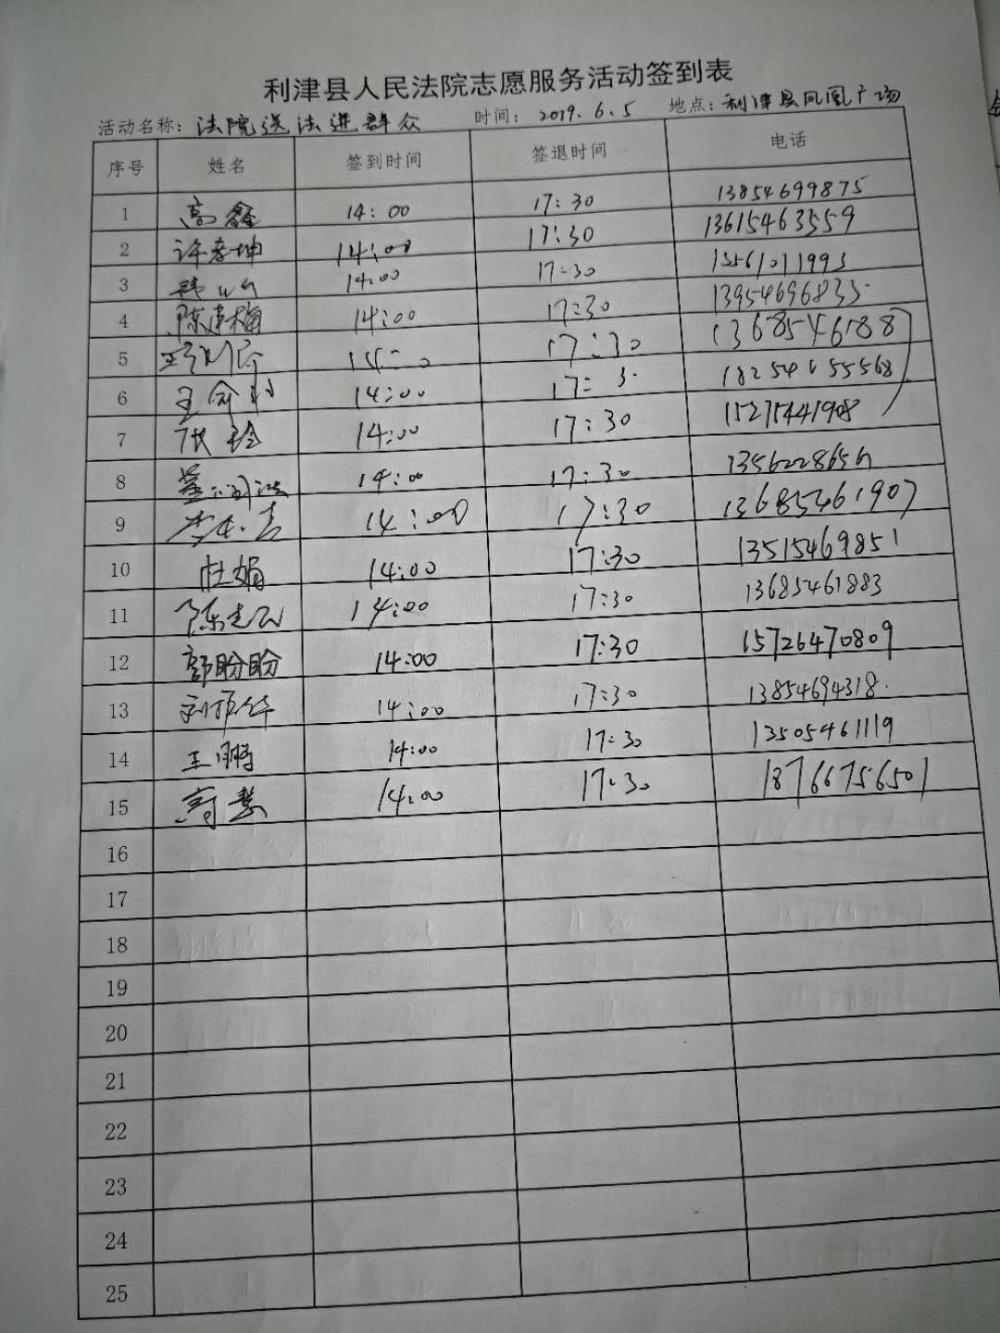 利津县人民法院志愿服务活动签到表
活动名称：法院送法进群众 时间：2019.6.5 地点：利津县凤凰广场
序号 姓名 签到时间 签退时间 电话
1 高鑫 14:00 17:30 13854699875
2 许孝坤 14:00 17:30 13615463559
3 14:00 17:30 13561011993
4 陈连梅 14:00 17:30 13954696835
5 17:30 1368546188
6 14:00 17:3 18254655568
7 张玲 14:00 17:30 15275441908
8 14:00 17:30
9 14:00 17:30 13685461907
10 杜娟 14:00 17:30 13515469851
11 陈志公 14:00 17:30 13685461883
12 郭盼盼 14:00 17:30 15726470809
13 14:00 17:30 13854694318
14 王鹏 14:00 17:30 13505461119
15 高慧 14:00 17:30 18766756501
16
17
18
19
20
21
22
23
24
25